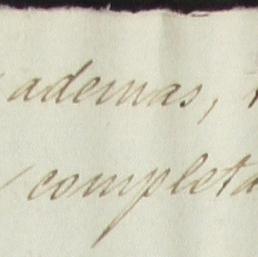 ademas,
completa